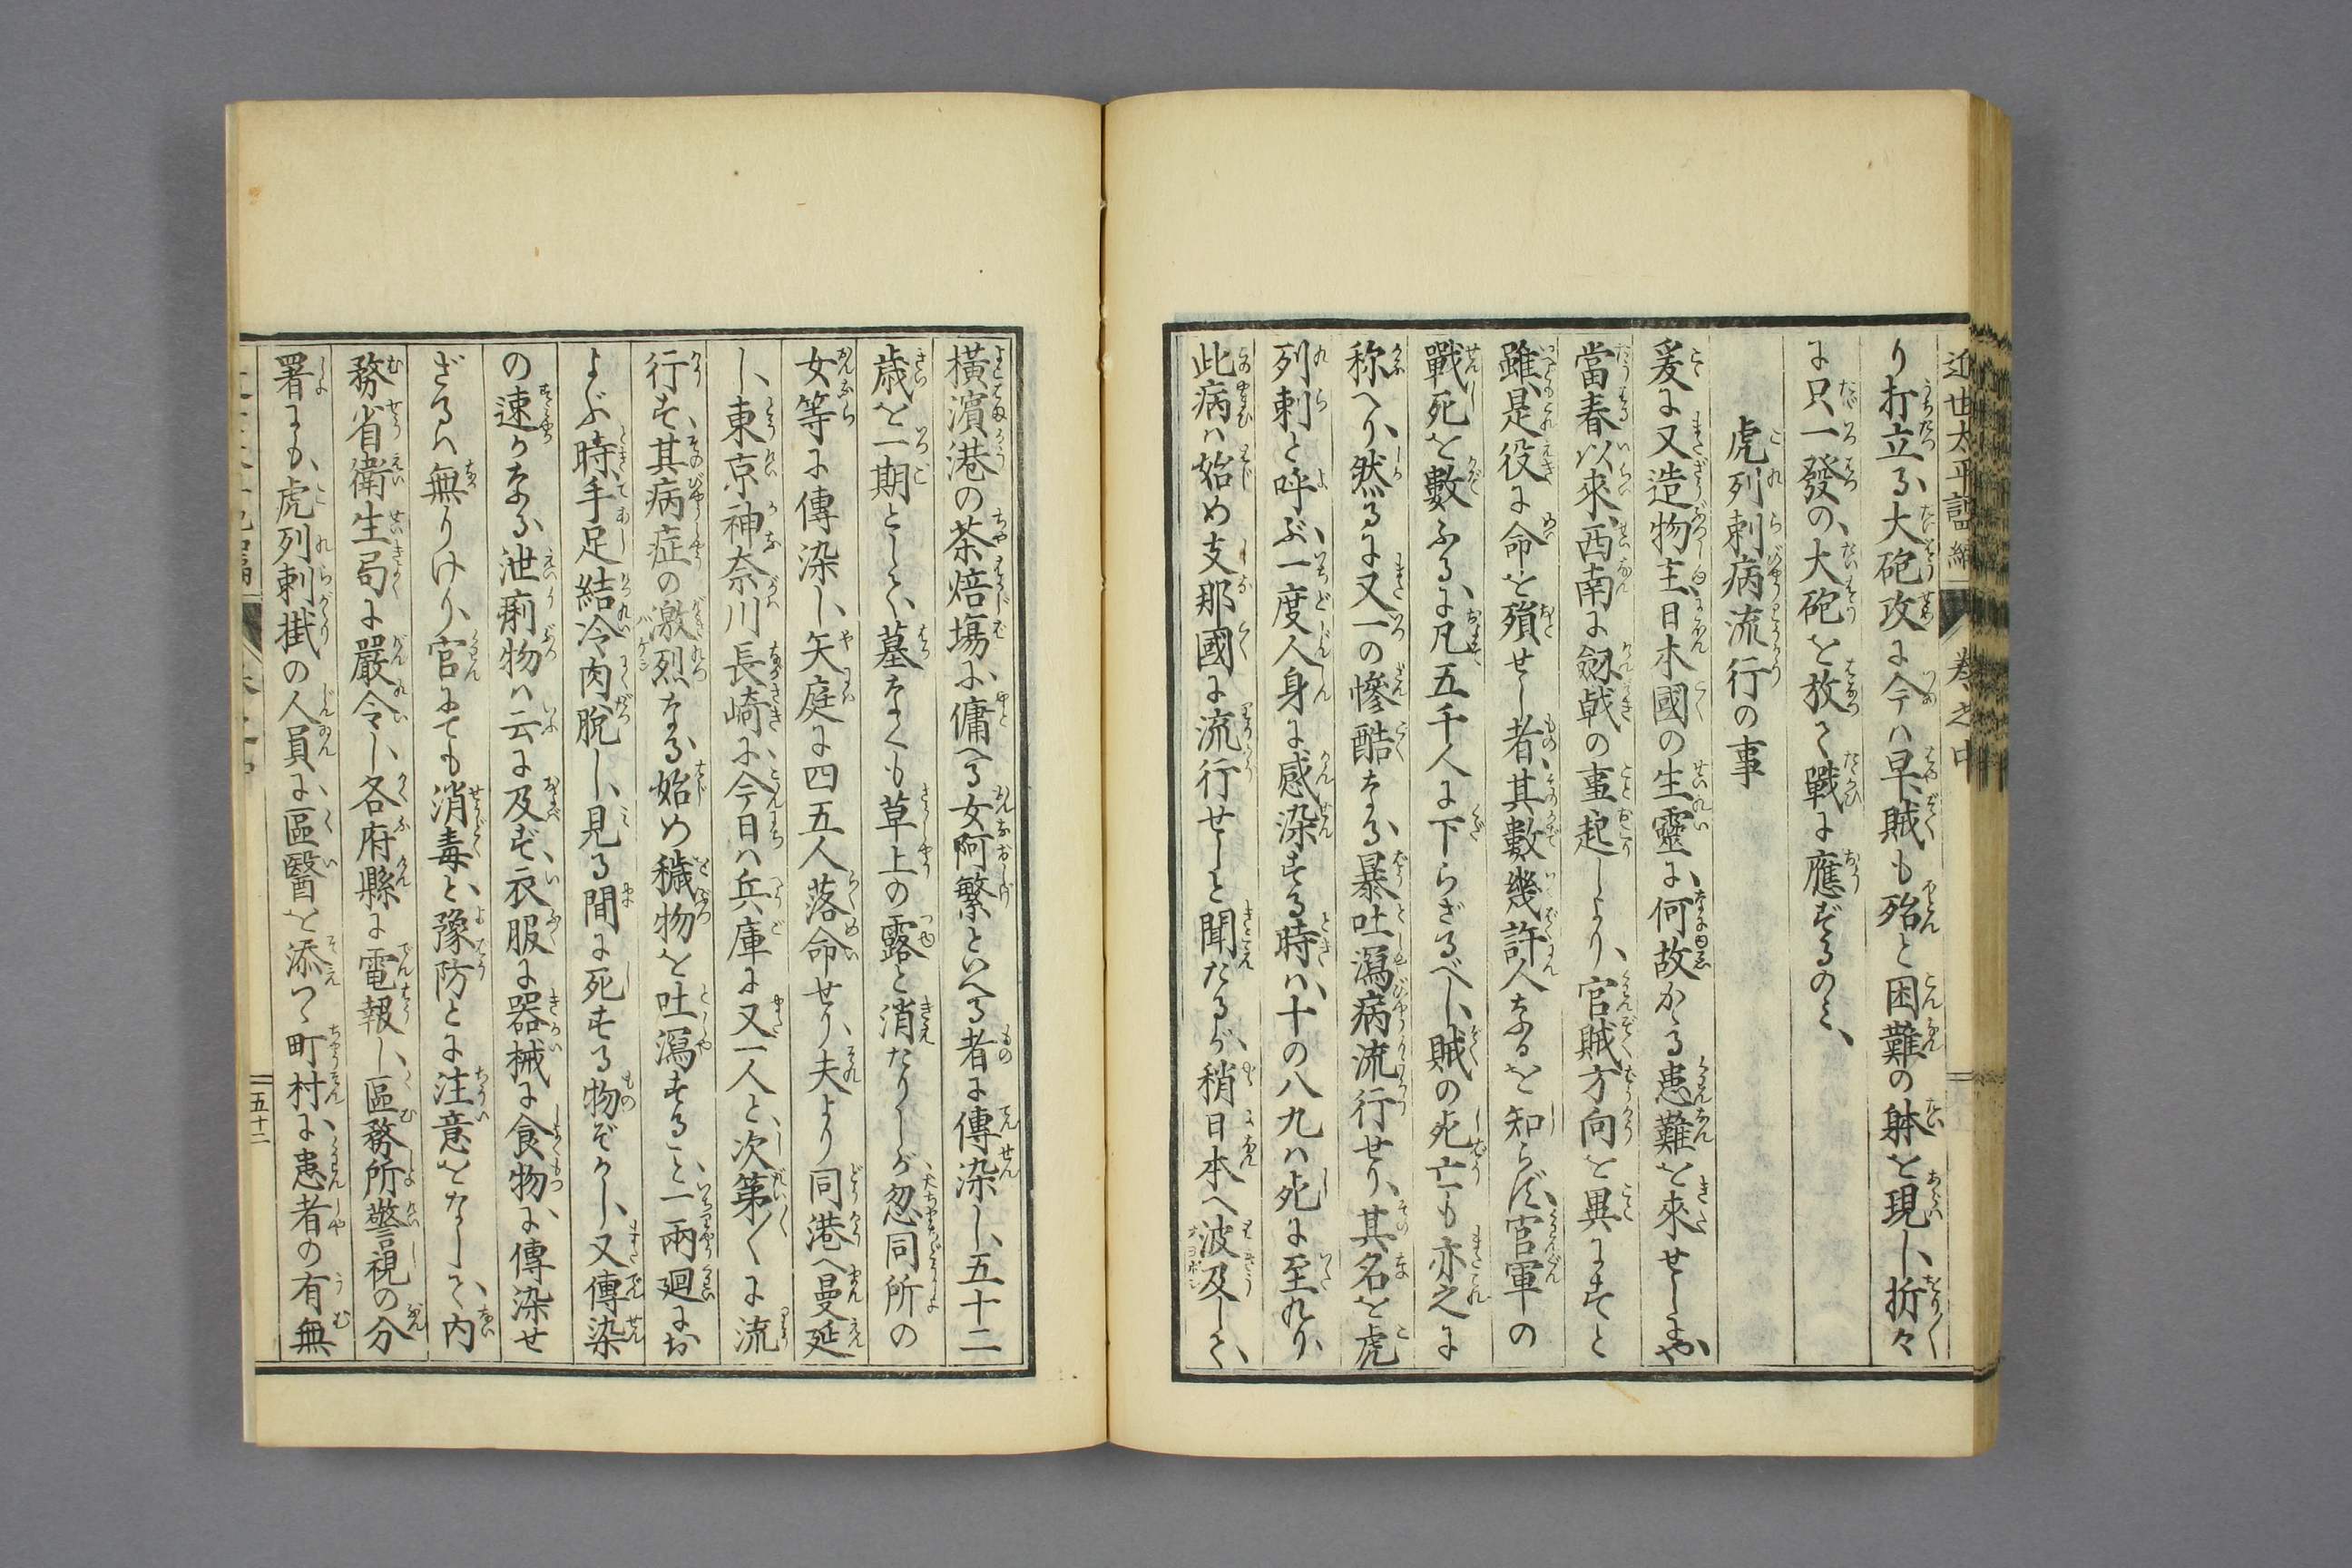 近世太平記編 巻之中
り打立る大砲攻に今ハ早、賊も殆と困難の躰を現し、折々
に只一發の、大砲を放て戰に應ずるのミ、
虎列剌病流行の事
爰に又造物主、日本國の生靈に、何故かゝる患難を來せしにや、
當春以來、西南に劔戟の事起しより、官賊方向を異にすと
雖、是役に命を殞せし者、其數幾許人なるを知らず、官軍の
戰死を數ふるに凡五千人に下らざるべし、賊の死亡も亦之に
称へり、然るに又一の慘酷なる、暴吐瀉病流行せり、其名を虎
列剌と呼ぶ、一度人身に感染する時ハ、十の八九ハ死に至れり、
此病ハ始め支那國に流行せしと聞たるが、稍日本へ波及して、
横濱港の茶焙塲に、傭へる女阿繁といへる者に傳染し、五十二
歳を一期として、墓なくも草上の露と消たりしが、忽同所の
女等に傳染し、矢庭に四五人落命せり、夫より同港へ曼延
し、東京神奈川長崎に、今日ハ兵庫に又一人と、次第〱に流
行す、其病症の激烈なる、始め穢物を吐瀉すること、一兩廻にお
よぶ時手足結冷肉脱し、見る間に死する物ぞかし、又傳染
の速かなる、泄痢物ハ云に及ず、衣服に器械に食物に傳染せ
ざるハ無りけり、官にても消毒と、豫防とに注意をなして、内
務省衛生局に嚴令し、各府縣に電報し、區務所警視の分
署にも、虎列剌掛の人員に、區醫を添つゝ町村に、患者の有無
五十二